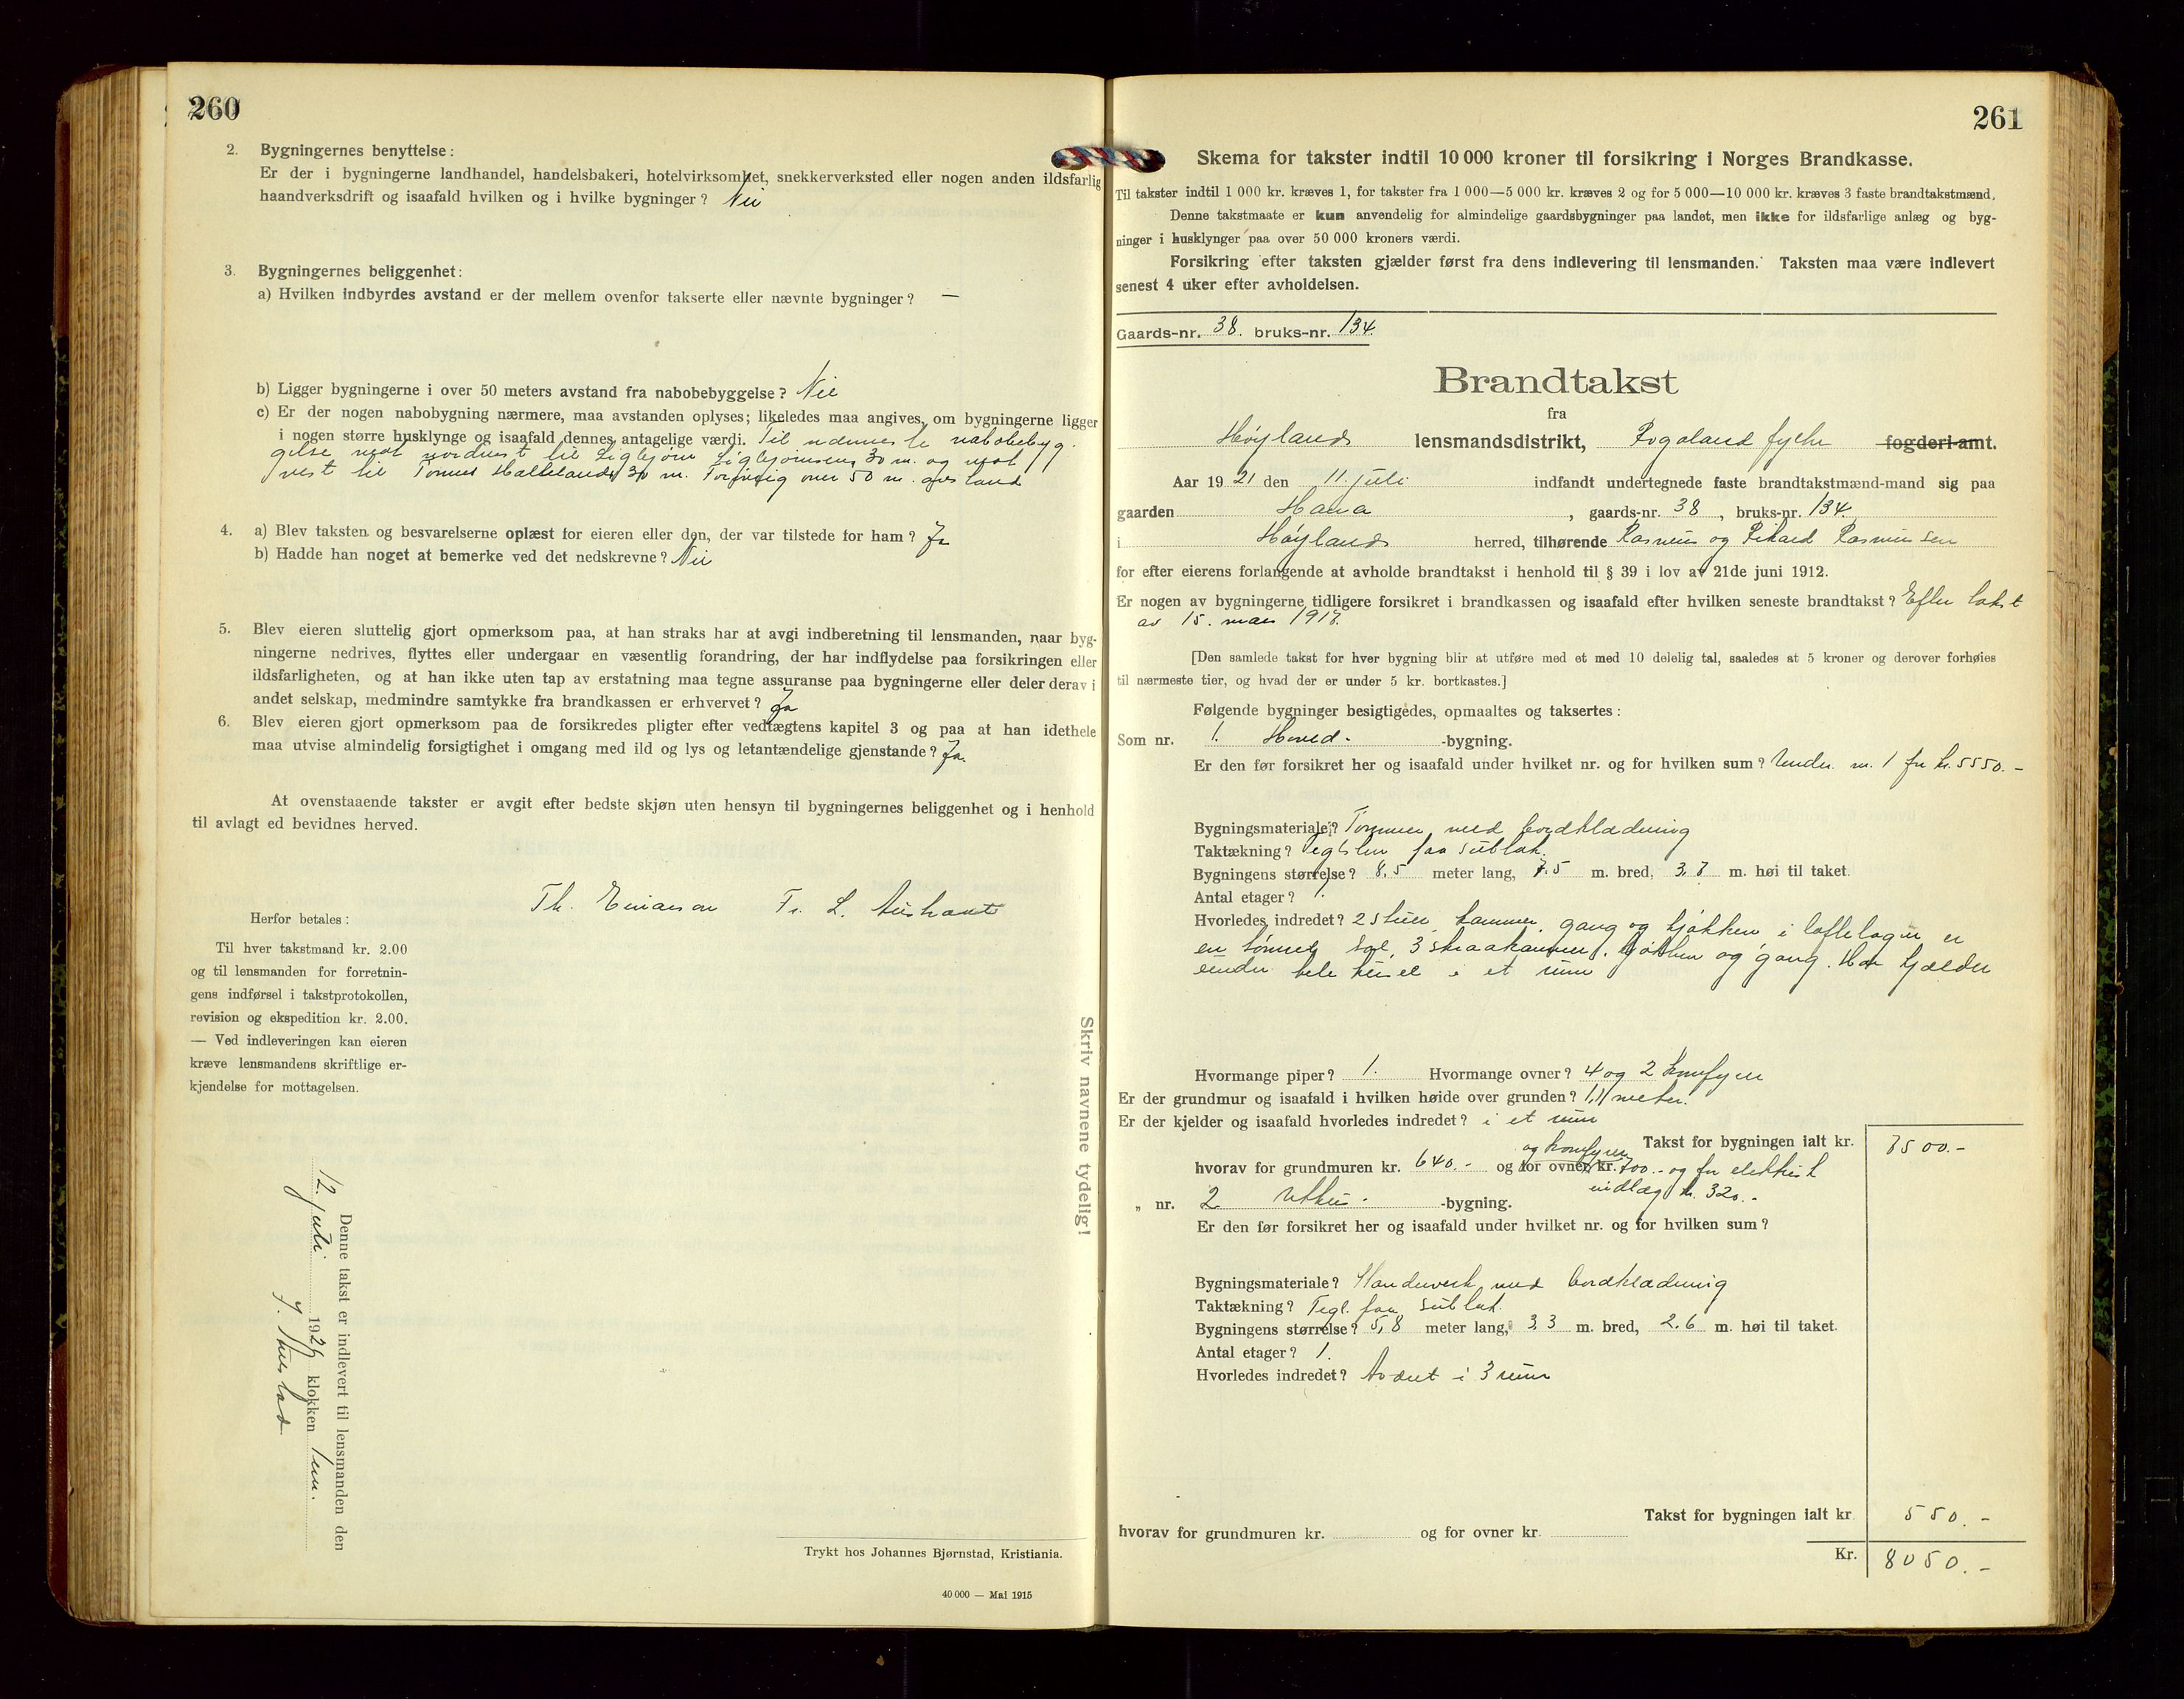 260
2. Bygningernes benyttelse:
Er der i bygningerne landhandel, handelsbakeri, hotelvirksomhet, snekkerverksted eller nogen anden ildsfarlig
haandverksdrift og isaafald hvilken og i hvilke bygninger? Nei
3. Bygningernes beliggenhet:
a) Hvilken indbyrdes avstand er der mellem ovenfor takserte eller nævnte bygninger? —
b) Ligger bygningerne i over 50 meters avstand fra nabobebyggelse? Nei
c) Er der nogen nabobygning nærmere, maa avstanden oplyses; likeledes maa angives, om bygningerne ligger
i nogen større husklynge og isaafald dennes antagelige værdi. Til nabobebyg-
gelse mot nordvest til 30 m. og mot
vest til Tønnes Hallelands 30 m. Forøvrig over 50 m. avstand
4. a) Blev taksten og besvarelserne oplæst for eieren eller den, der var tilstede for ham? Ja
b) Hadde han noget at bemerke ved det nedskrevne? Nei
5. Blev eieren sluttelig gjort opmerksom paa, at han straks har at avgi indberetning til lensmanden, naar byg-
ningerne nedrives, flyttes eller undergaar en væsentlig forandring, der har indflydelse paa forsikringen eller
ildsfarligheten, og at han ikke uten tap av erstatning maa tegne assuranse paa bygningerne eller deler derav i
andet selskap, medmindre samtykke fra brandkassen er erhvervet? Ja
6. Blev eieren gjort opmerksom paa de forsikredes pligter efter vedtægtens kapitel 3 og paa at han idethele
maa utvise almindelig forsigtighet i omgang med ild og lys og letantændelige gjenstande? Ja.
At ovenstaaende takster er avgit efter bedste skjøn uten hensyn til bygningernes beliggenhet og i henhold
til avlagt ed bevidnes herved.
Th. Fr. L.
Herfor betales:
Til hver takstmand kr. 2.00
og til lensmanden for forretnin-
gens indførsel i takstprotokollen,
revision og ekspedition kr. 2.00.
— Ved indleveringen kan eieren
kræve lensmandens skriftlige er-
kjendelse for mottagelsen.
Skriv navnene tydelig!
Denne takst er indlevert til lensmanden den
12. juli 1921 klokken 1 em.
Trykt hos Johannes Bjørnstad, Kristiania.
40 000 — Mai 1915
261
Skema for takster indtil 10 000 kroner til forsikring i Norges Brandkasse.
Til takster indtil 1 000 kr. kræves 1, for takster fra 1 000—5 000 kr. kræves 2 og for 5 000—10 000 kr. kræves 3 faste brandtakstmænd.
Denne takstmaate er kun anvendelig for almindelige gaardsbygninger paa landet, men ikke for ildsfarlige anlæg og byg-
ninger i husklynger paa over 50 000 kroners værdi.
Forsikring efter taksten gjælder først fra dens indlevering til lensmanden. Taksten maa være indlevert
senest 4 uker efter avholdelsen.
Gaards-nr. 38. bruks-nr. 134.
Brandtakst
fra
Høylands lensmandsdistrikt, Rogaland fylke fogderi-amt.
Aar 1921 den 11. juli indfandt undertegnede faste brandtakstmænd-mand sig paa
gaarden Hana, gaards-nr. 38, bruks-nr. 134.
i Høylands herred, tilhørende Rasmus og Rikard Rasmussen
for efter eierens forlangende at avholde brandtakst i henhold til § 39 i lov av 21de juni 1912.
Er nogen av bygningerne tidligere forsikret i brandkassen og isaafald efter hvilken seneste brandtakst? Efter takst
av 15. mars 1917.
[Den samlede takst for hver bygning blir at utføre med et med 10 delelig tal, saaledes at 5 kroner og derover forhøies
til nærmeste tier, og hvad der er under 5 kr. bortkastes.]
Følgende bygninger besigtigedes, opmaaltes og taksertes:
Som nr. 1. Hoved- -bygning.
Er den før forsikret her og isaafald under hvilket nr. og for hvilken sum? Under nr. 1 for kr. 5550.-
Bygningsmateriale? Tømmer med bordklædning
Taktækning? Teglsten paa sutak.
Bygningens størrelse? 8,5 meter lang, 7.5 m. bred, 3,7 m. høi til taket.
Antal etager? 1.
Hvorledes indredet? 2 stuer, kammer, gang og kjøkken i loftelagen er
en tømret sal, 3 skraakammer, kjøkken og gang. Har kjælder
under hele huset i et rum
Hvormange piper? 1. Hvormange ovner? 4 og 2 komfyrer
Er der grundmur og isaafald i hvilken høide over grunden? 1,11 meter.
Er der kjelder og isaafald hvorledes indredet? i et rum
Takst for bygningen ialt kr. 7500.-
hvorav for grundmuren kr. 640.- og for ovner og komfyrer kr. 700.- og for elektrisk
indlæg kr. 320.-
„ nr. 2 Uthus- -bygning.
Er den før forsikret her og isaafald under hvilket nr. og for hvilken sum?
Bygningsmateriale? Standerverk med bordklædning
Taktækning? Tegl. paa sutak.
Bygningens størrelse? 5,8 meter lang, 3,3 m. bred, 2.6 m. høi til taket.
Antal etager? 1.
Hvorledes indredet? Avdelt i 3 rum
Takst for bygningen ialt kr 550.-
hvorav for grundmuren kr. og for ovner kr.
Kr. 8050.-